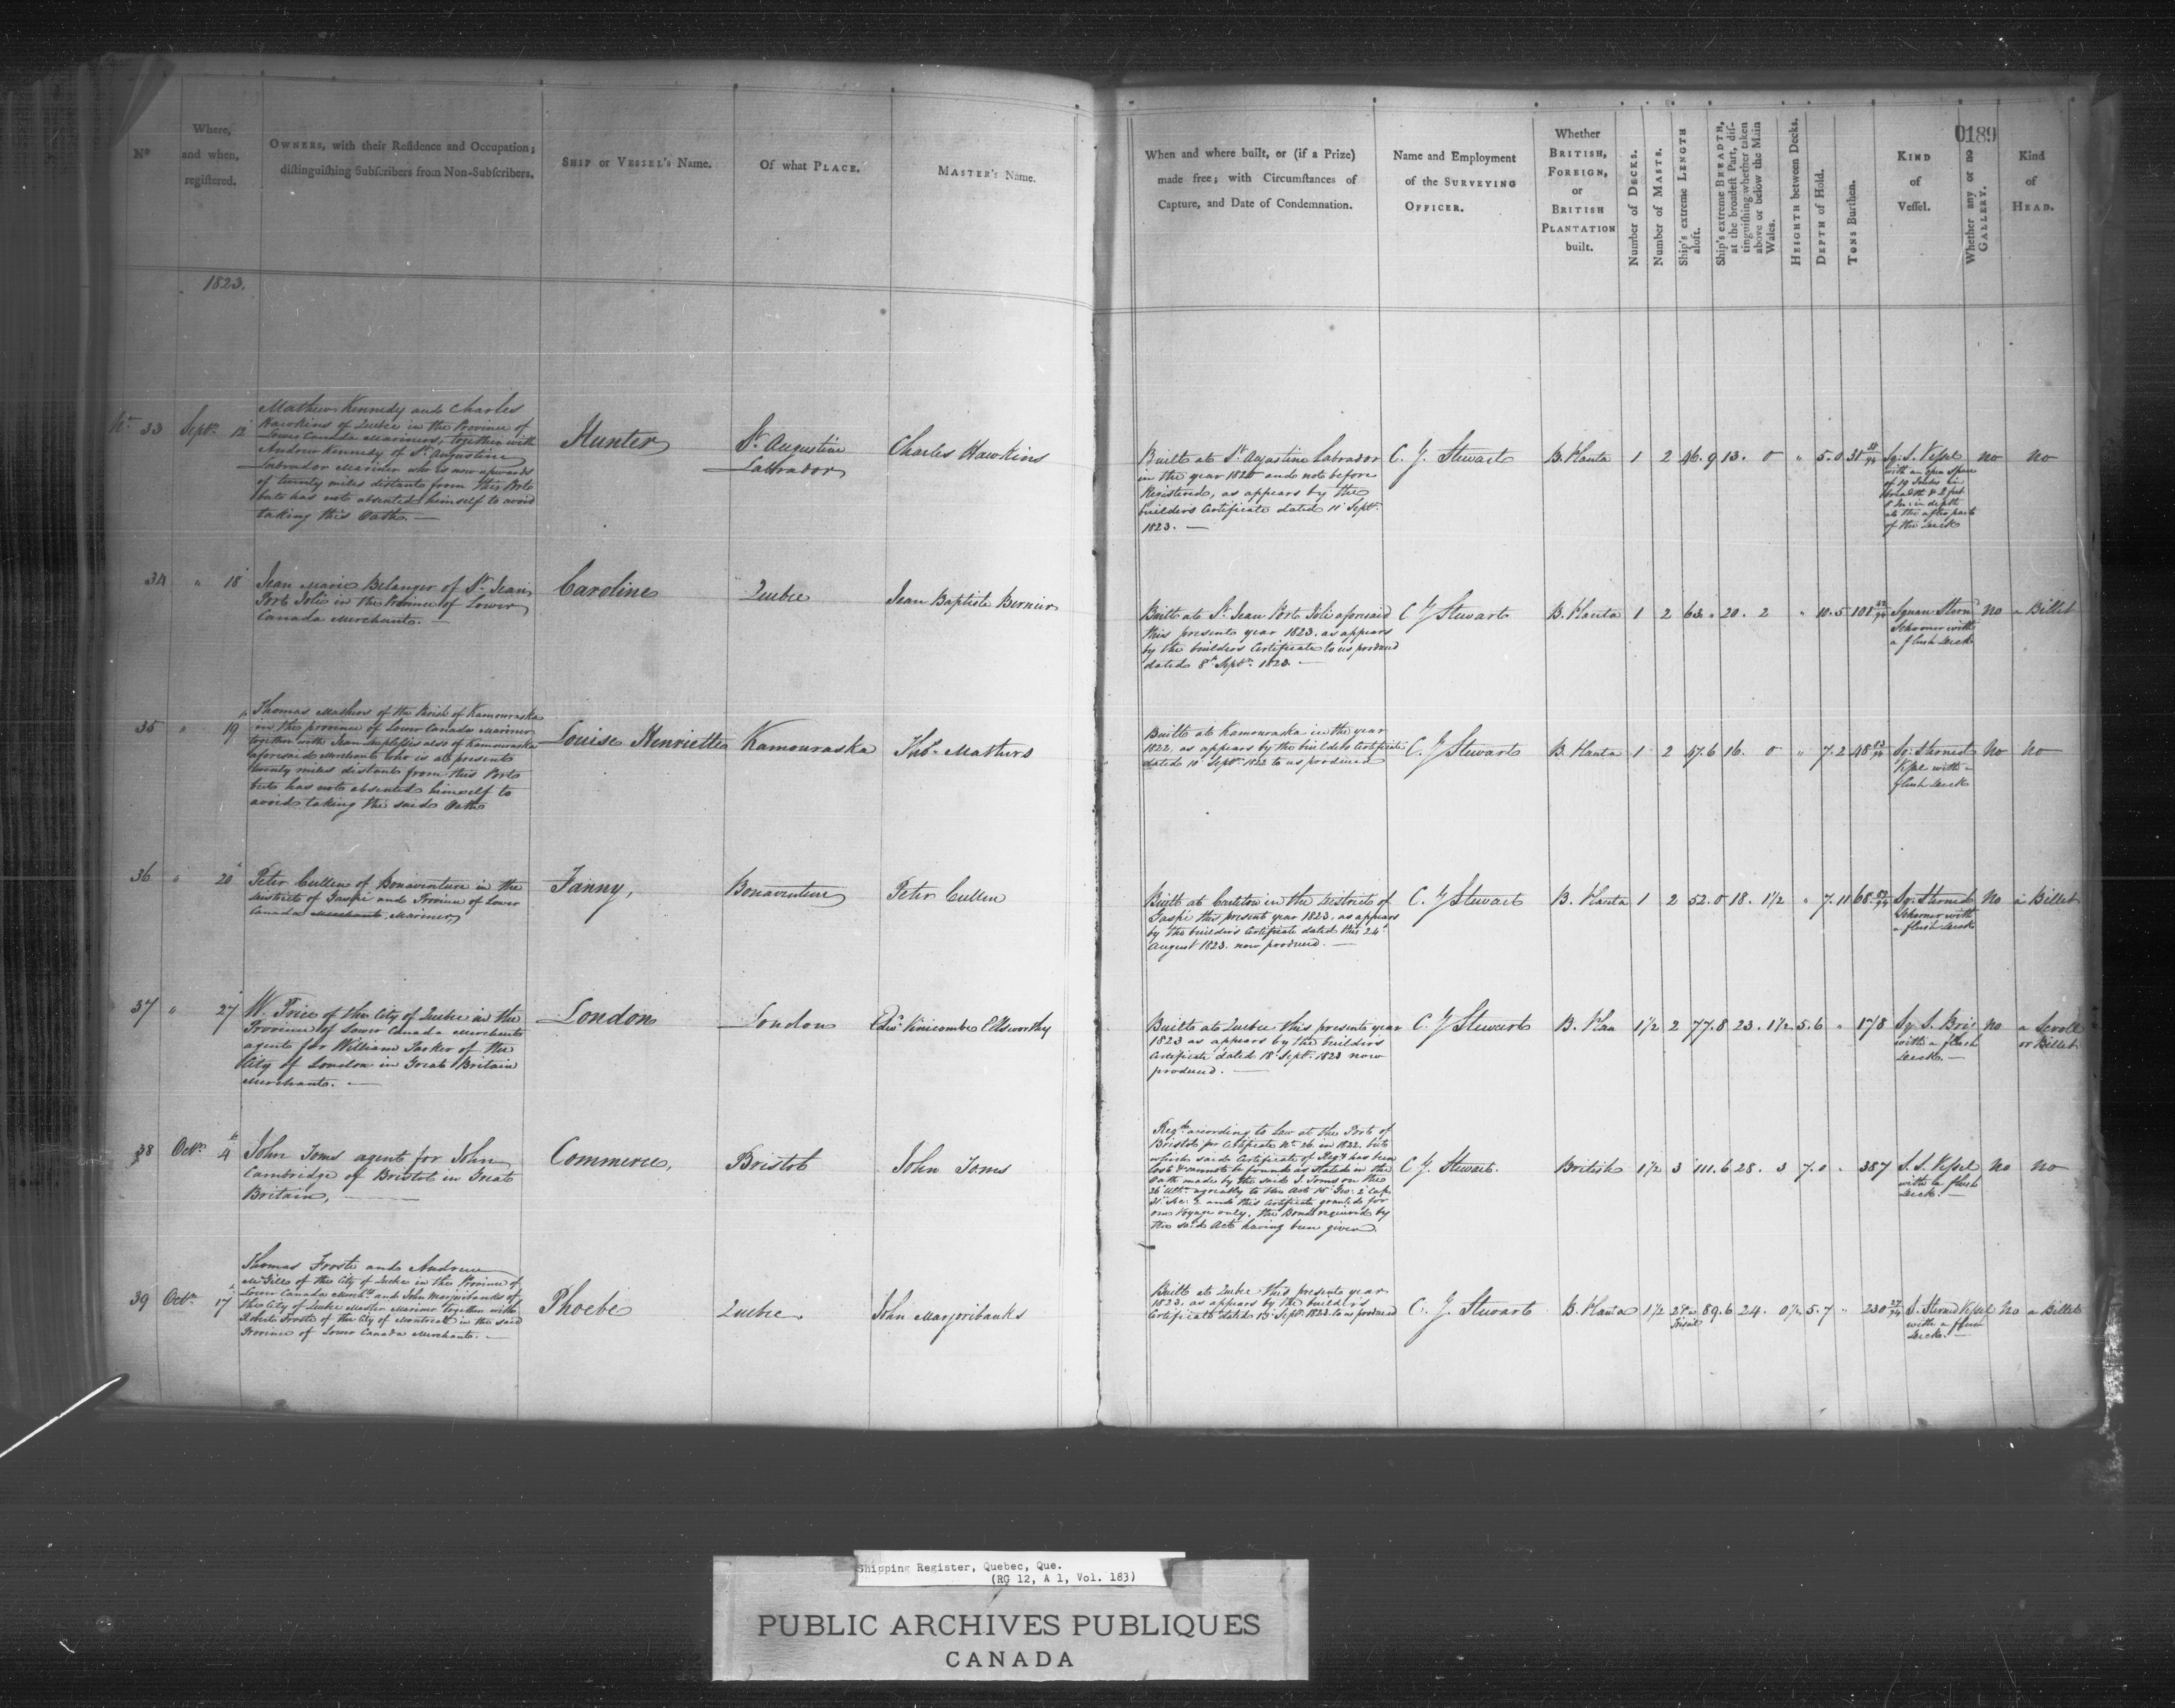 0189
No
Where,
and when,
registered.
OWNERS, with their Residence and Occupation;
distinguishing Subscribers from Non-Subscribers.
SHIP or VESSEL's Name.
Of what PLACE.
MASTER's Name.
When and where built, or (if a Prize)
made free; with Circumstances of
Capture, and Date of Condemnation.
Name and Employment
of the SURVEYING
OFFICER.
Whether
BRITISH,
FOREIGN,
or
BRITISH
PLANTATION
built.
Number of DECKS.
Number of MASTS.
Ship's extreme LENGTH
aloft.
Ship's extreme BREADTH,
at the broadest Part, dis-
tinguishing whether taken
above or below the Main
Wales.
HEIGHT between Decks.
DEPTH of Hold.
TONS Burthen.
KIND
of
Vessel.
Whether any or no
GALLERY.
Kind
of
HEAD.
1823.
No 33 Septr 12
Mathew Kennedy and Charles
Hawkins of Quebec in the Province of
Lower Canada Mariners, together with
Andrew Kennedy of St Augustine
Labrador Mariner who is now upwards
of twenty miles distant from this Port
but has not absented himself to avoid
taking this Oath. —
Hunter
St Augustine
Labrador
Charles Hawkins
Built at St Augustine Labrador
in the year 1820 and not before
Registered, as appears by the
builders Certificate dated 11 Septr
1823. —
C. J. Stewart
B. Planta 1 2 46.9 13. 0 " 5.0 31
Sq. S. Vessel
with an open space
of 19 Inches in
breadth & 2 feet
8 In: in depth
at the after part
of the deck
no no
34 " 18
Jean Marie Belanger of St Jean
Port Joli in the Province of Lower
Canada Merchant. —
Caroline
Quebec
Jean Baptiste Bernier
Built at St Jean Port Joli aforesaid
this present year 1823. as appears
by the builders Certificate to us produced
dated 8th Septr 1823. —
C J Stewart
B. Planta 1 2 63. " 20. 2 " 10.5 108
Square Stern
Schooner with
a flush deck
No a Billet
35 " 19
Thomas Mathers of the Parish of Kamouraska
in the province of Lower Canada Mariner
together with Jean Duplessis also of Kamouraska
aforesaid Merchant who is at present
twenty miles distant from this Port
but has not absented himself to
avoid taking the said Oath
Louise Henriette
Kamouraska
Thos Mathers
Built at Kamouraska in the year
1822, as appears by the builders Certificate
dated 10 Septr 1822 to us produced
C. J Stewart
B. Planta 1 2 47.6 16. 0 " 7.2 48
Sq. Sterned
Vessel with a
flush deck
No No
36 " 20
Peter Cullen of Bonaventure in the
district of Gaspé and Province of Lower
Canada Merchant, Mariner
Fanny,
Bonaventure
Peter Cullen
Built at Carleton in the District of
Gaspé this present year 1823. as appears
by the builders Certificate dated this 24
August 1823. now produced. —
C. J Stewart
B. Planta 1 2 52.0 18. 1½ " 7.11 68
Sq. Sterned
Schooner with
a flush deck
No a Billet
37 " 27
W. Price of the City of Quebec in the
Province of Lower Canada Merchant
agent for William Parker of the
City of London in Great Britain
Merchant. —
London
London
Edwd Vinicombe Elsworthy
Built at Quebec this present year
1823 as appears by the builders
Certificate dated 18 Septr 1823 now
produced. —
C. J Stewart
B. Plan 1½ 2 77.8 23. 1½ 5.6 " 178
Sq. S. Brig
with a flush
deck. —
No a Scroll
or Billet
38 Octr 4
John Toms agent for John
Cambridge of Bristol in Great
Britain, —
Commerce,
Bristol
John Toms
Regd according to Law at the Port of
Bristol per Certificate No 26 in 1822. but
which said Certificate of Regy has been
lost & cannot be found as stated in the
Oath made by the said J. Toms on the
26 Ulto agreeably to the Act 15 Geo: 2 Cap.
31 Sec: 2 and this Certificate granted for
one Voyage only, the Bond required by
the said Act having been given.
C J. Stewart.
British 1½ 3 111.6 28. 3 7.0 . 387
S. S. Vessel
with a flush
deck. —
No no
39 Octr 17
Thomas Froste and Andrew
McGill of the City of Quebec in the Province of
Lower Canada Merchts and John Marjoribanks of
the City of Quebec Master Mariner together with
Robert Froste of the City of Montreal in the said
Province of Lower Canada Merchant. —
Phoebe
Quebec
John Marjoribanks
Built at Quebec this present year
1823. as appears by the builders
Certificate dated 15 Septr 1823 to us produced
C. J. Stewart
B. Planta 1½ 2 & a
Trisail
89.6 24. 0½ 5.7 " 230 27/94
S. Sterned Vessel
with a flush
deck. —
No a Billet
Shipping Register, Quebec, Que.
(RG 12, A 1, Vol. 183)
PUBLIC ARCHIVES PUBLIQUES
CANADA